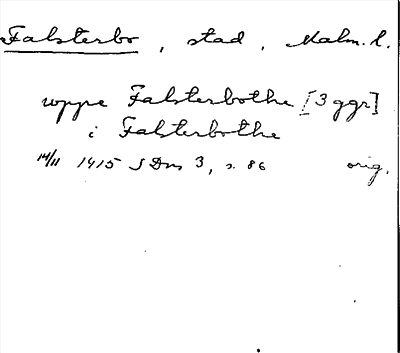 Falsterbo, stad, Malm. l.
uppe Falsterbothe [3 ggr]
i Falsterbothe
14/11 1415 SDns 3, s. 86 orig.